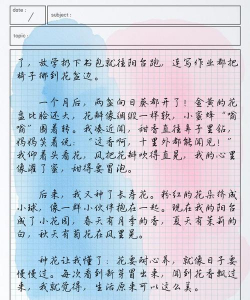 date:
subject:
topic:
了，放学扔下书包就往阳台跑，连写作业都把
椅子挪到花盆边。
一个月后，两盆向日葵都开了！金黄的花
盘比脸还大，花瓣像绸缎一样软，小蜜蜂“嗡
嗡”围着转。我凑近闻，甜香直往鼻子里钻，
妈妈笑着说：“这香啊，十里外都能闻见！”
我仰着头看花，风把花瓣吹得直晃，我的心里
像灌了蜜，甜得要冒泡。
后来，我又种了长寿花。粉红的花朵挤成
小球，像一群小伙伴抱在一起。现在我的阳台
成了小花园，春天有月季的香，夏天有茉莉的
白，秋天有菊花在风里晃。
种花让我懂了：花要耐心养，就像日子要
慢慢过。每次看到新芽冒出来，闻到花香飘过
来，我就觉得，生活原来可以这么美。